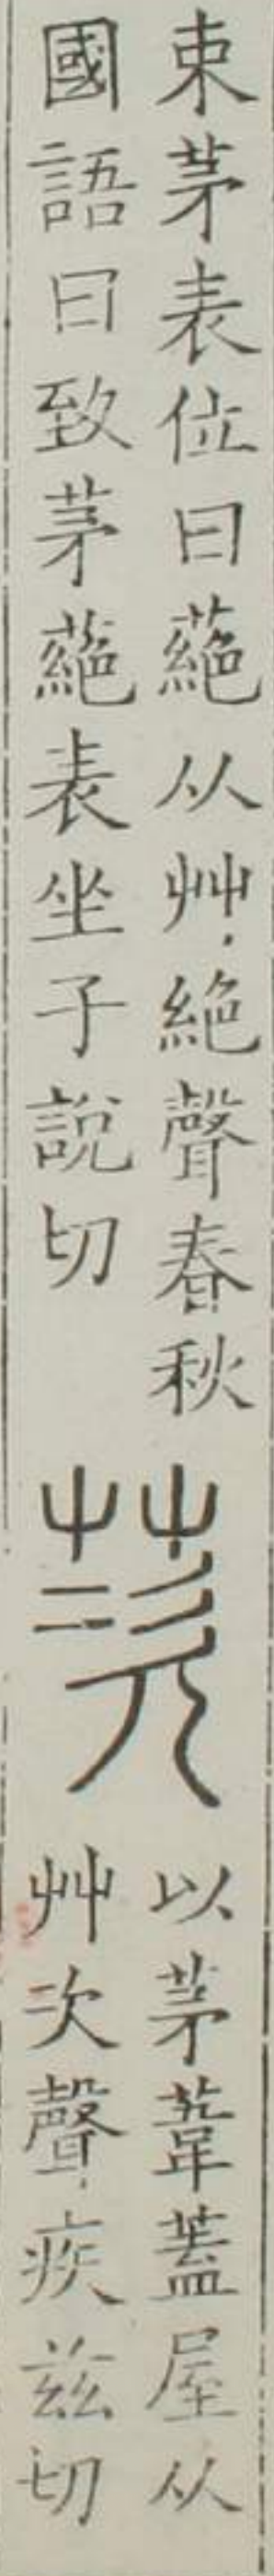 束茅表位曰蕝从艸絕聲春秋
國語曰致茅蕝表坐子說切
茨
以茅葦蓋屋从
艸次聲疾兹切